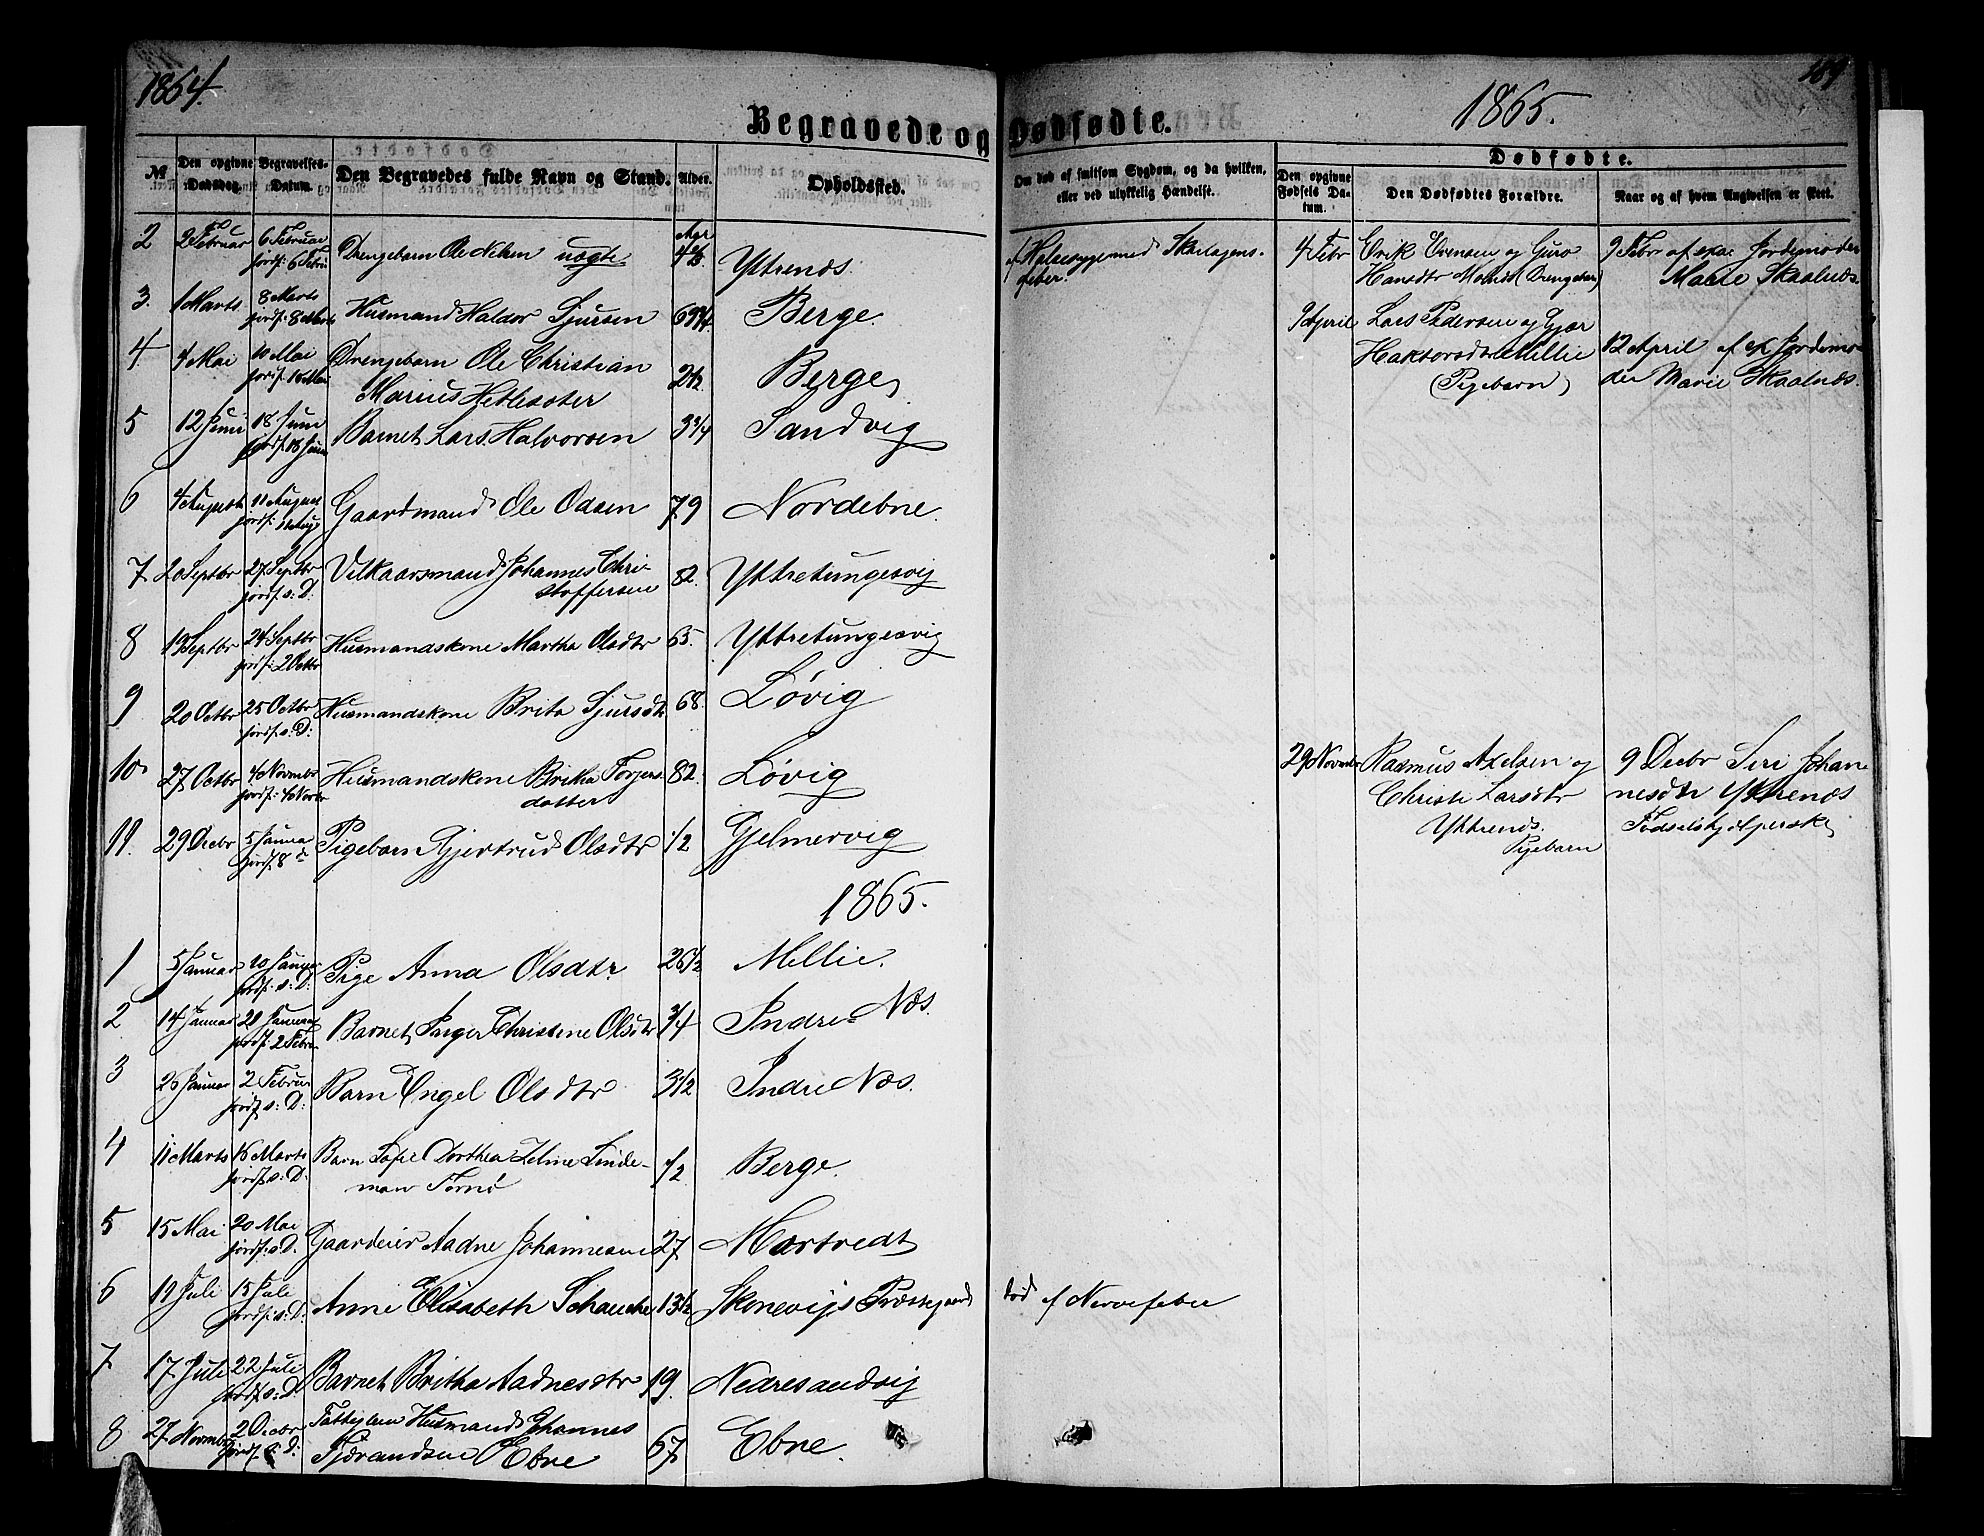 1864.
1865.
189
Begravede og Dødfødte.
№
Den opgivne Dødsdag.
Begravelses-Datum.
Den Begravedes fulde Navn og Stand.
Alder.
Opholdssted.
Om død af smitsom Sygdom, og da hvilken, eller ved ulykkelig Hændelse.
Dødfødte.
Den opgivne Fødsels Datum.
Den Dødfødtes Forældre.
Naar og af hvem Angivelsen er skeet.
2 2 Februar 6 Februar Drengebarn Ole Nilsen uægte Aar 4 Yttrenæs.
jordf: 6 Febr
af Halssyge med Skarlagens-
feber.
4 Febr Erik Evensen og Guro
Hansdtr (Drengebarn)
9 Febr af exa: Jordemoder
Marie Skaalnæs.
3. 1 Marts 8 Marts Husmand Haldor Sjursen 69 Berge.
jordf: 8 Marts
9 April Lars Pedersen og
Millie
(Pigebarn)
12 April af ex Jordemo-
der Marie Skaalnæs.
4 4 Mai 10 Mai Drengebarn Ole Christian
Marius Hetlesæter 2½ Berge,
5 12 Juni 18 Juni Barnet Lars Halvorsen 3¾ Sandvig
jordf. 18 Juni
6 4 August 11 August Gaardmand Ole Odsen 79 Nordebne.
jordf: 11 Aug
7 20 Septbr 27 Septbr Vilkaarsmand Johannes Chri
stoffersen 82. Yttretungesvig
jordf. s: D:
8 19 Septbr 24 Septbr Husmandskone Martha Olsdtr 65. Yttretungesvig
jordf: 2 Octbr
9 20 Octbr 25 Octbr Husmandskone Brita Sjursdtr 68. Løvig
jordf. s: D:
10 27 Octbr 4 Novembr Husmandskone Britha Torgers
datter 82. Løvig
jordf: 4 Novbr
29 Novembr Rasmus Axelsen og
Christi Larsdtr
Yttrenæs.
Pigebarn
9 Decbr Siri Johan
nesdtr Yttrenæs
Fødselshjælperske
11. 29 Decbr 5 Januar Pigebarn Gjertrud Olsdtr ½ Gjelmervig
jordf. 8
1865.
1 5 Januar 10 Januar Pige Anna Olsdtr 26½ Millie.
jordf. s: D:
2 14 Januar 20 Januar Barnet Inger Christine Olsdtr ¾ Indre Næs.
jordf. 2 Febr
3 26 Januar 2 Februar Barn Engel Olsdtr 3½ Indre Næs.
jordf s: D:
4 11 Marts 16 Marts Barn Sofie Dorthea Linde-
man ½ Berge.
jordf s: D:
5 15 Mai 20 Mai Gaardeier Aadne Johannesen 27 Mortvedt
jordf. s. D.
6 19 Juli 15 Juli Anne Elisabeth Schanche 13½ Skonevigs Præstegaard
jordf. s: D.
død af Nervefeber
7 17 Juli 22 Juli Barnet Britha Aadnesdtr 19. Nedresandvig
jordf s: D
8 27 Novmbr 2 Decbr Fattiglem Husmand Johannes
Tjørandsen Ebne 67 Ebne.
jordf s: D: